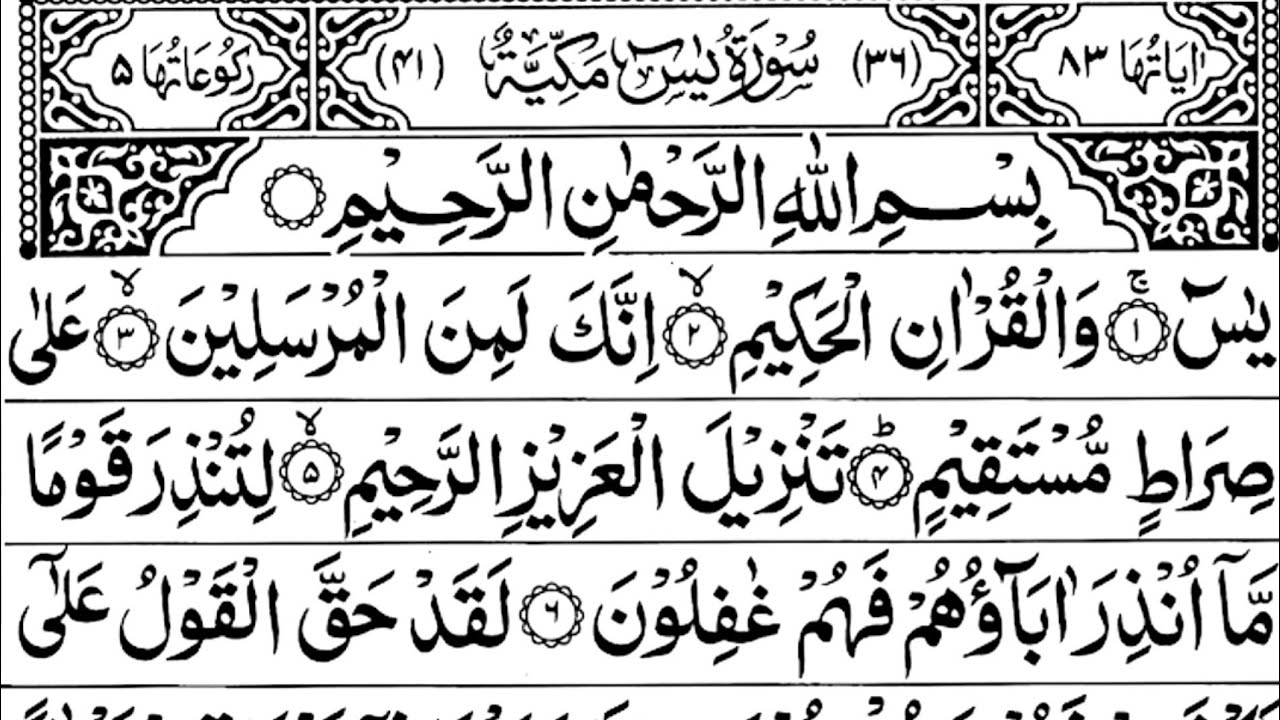 اٰيَاتُهَا ٨٣ (٣٦) سُوْرَةُ يٰسٓ مَكِّيَّةٌ (٤١) رُكُوْعَاتُهَا ٥
بِسْمِ اللّٰهِ الرَّحْمٰنِ الرَّحِيْمِ ۝
يٰسٓ ۝١ۚ وَالْقُرْاٰنِ الْحَكِيْمِ ۝٢ۙ اِنَّكَ لَمِنَ الْمُرْسَلِيْنَ ۝٣ۙ عَلٰى
صِرَاطٍ مُّسْتَقِيْمٍ ۝۴ؕ تَنْزِيْلَ الْعَزِيْزِ الرَّحِيْمِ ۝٥ۙ لِتُنْذِرَ قَوْمًا
مَّاۤ اُنْذِرَ اٰبَآؤُهُمْ فَهُمْ غٰفِلُوْنَ ۝٦ لَقَدْ حَقَّ الْقَوْلُ عَلٰۤى